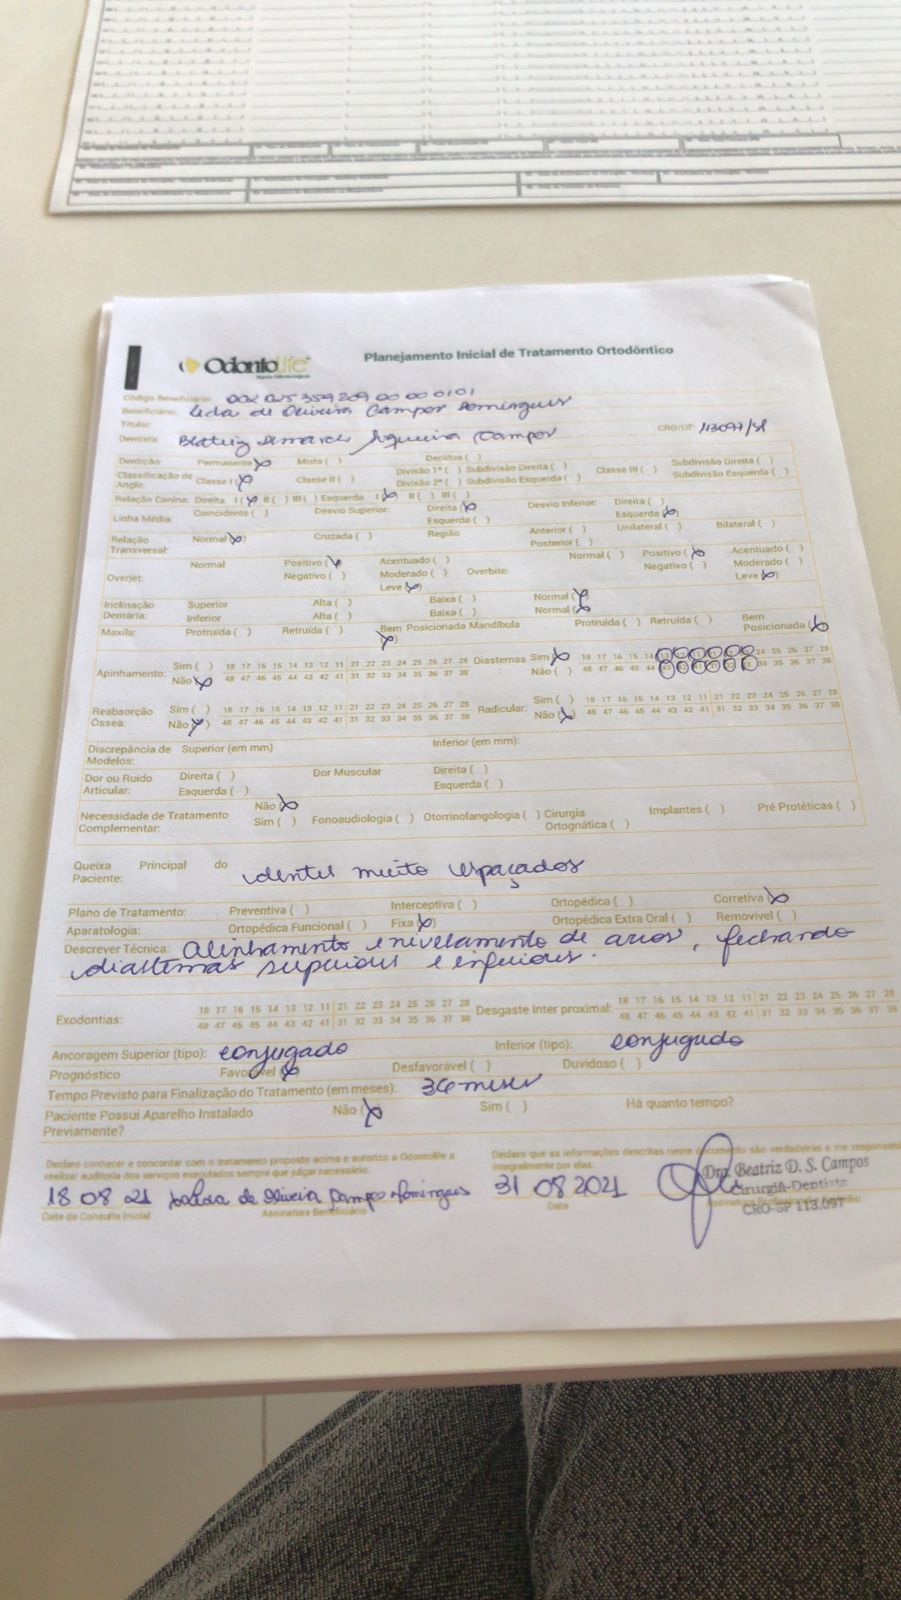 OdontoLife
Planos Odontológicos
Planejamento Inicial de Tratamento Ortodôntico
Código Beneficiário:
Beneficiário: de Oliveira Campos Domingues
Titular:
Dentista: Beatriz Siqueira Campos CRO/UF: 113097/SP
Dentição: Permanente (x) Mista ( ) Decídua ( )
Classificação de Angle: Classe I (x) Classe II ( ) Divisão 1ª ( ) Subdivisão Direita ( ) Classe III ( ) Subdivisão Direita ( )
Divisão 2ª ( ) Subdivisão Esquerda ( ) Subdivisão Esquerda ( )
Relação Canina: Direita I (x) II ( ) III ( ) Esquerda I (x) II ( ) III ( )
Linha Média: Coincidente ( ) Desvio Superior: Direita (x) Desvio Inferior: Direita ( )
Esquerda ( ) Esquerda (x)
Relação Transversal: Normal (x) Cruzada ( ) Região Anterior ( ) Unilateral ( ) Bilateral ( )
Posterior ( )
Overjet: Normal Positivo (x) Acentuado ( ) Overbite: Normal ( ) Positivo (x) Acentuado ( )
Negativo ( ) Moderado ( ) Negativo ( ) Moderado ( )
Leve (x) Leve (x)
Inclinação Dentária: Superior Alta ( ) Baixa ( ) Normal (x)
Inferior Alta ( ) Baixa ( ) Normal (x)
Maxila: Protruída ( ) Retruída ( ) Bem Posicionada (x) Mandíbula Protruída ( ) Retruída ( ) Bem Posicionada (x)
Apinhamento: Sim ( ) 18 17 16 15 14 13 12 11 21 22 23 24 25 26 27 28 Diastemas: Sim (x) 18 17 16 15 14 24 25 26 27 28
Não (x) 48 47 46 45 44 43 42 41 31 32 33 34 35 36 37 38 Não ( ) 48 47 46 45 44 34 35 36 37 38
Reabsorção Óssea: Sim ( ) 18 17 16 15 14 13 12 11 21 22 23 24 25 26 27 28 Radicular: Sim ( ) 18 17 16 15 14 13 12 11 21 22 23 24 25 26 27 28
Não (x) 48 47 46 45 44 43 42 41 31 32 33 34 35 36 37 38 Não (x) 48 47 46 45 44 43 42 41 31 32 33 34 35 36 37 38
Discrepância de Modelos: Superior (em mm) Inferior (em mm):
Dor ou Ruído Articular: Direita ( ) Dor Muscular Direita ( )
Esquerda ( ) Esquerda ( )
Necessidade de Tratamento Complementar: Não (x)
Sim ( ) Fonoaudiologia ( ) Otorrinolangologia ( ) Cirurgia Ortognática ( ) Implantes ( ) Pré Protéticas ( )
Queixa Principal do Paciente: dentes muito espaçados
Plano de Tratamento: Preventiva ( ) Interceptiva ( ) Ortopédica ( ) Corretiva (x)
Aparatologia: Ortopédica Funcional ( ) Fixa (x) Ortopédica Extra Oral ( ) Removível ( )
Descrever Técnica: Alinhamento e nivelamento de arcos, fechando
diastemas superiores e inferiores.
Exodontias: 18 17 16 15 14 13 12 11 21 22 23 24 25 26 27 28 Desgaste Inter proximal: 18 17 16 15 14 13 12 11 21 22 23 24 25 26 27 28
48 47 46 45 44 43 42 41 31 32 33 34 35 36 37 38 48 47 46 45 44 43 42 41 31 32 33 34 35 36 37 38
Ancoragem Superior (tipo): conjugado Inferior (tipo): conjugado
Prognóstico Favorável (x) Desfavorável ( ) Duvidoso ( )
Tempo Previsto para Finalização do Tratamento (em meses): 36 meses
Paciente Possui Aparelho Instalado Previamente? Não (x) Sim ( ) Há quanto tempo?
Declaro conhecer e concordar com o tratamento proposto acima e autorizo a Odontolife a
realizar auditoria dos serviços executados sempre que julgar necessário.
Declaro que as informações descritas neste documento são verdadeiras e me responsabi
integralmente por elas.
18 08 21 de Oliveira Campos Domingues 31 08 2021
Data da Consulta Inicial Assinatura Beneficiário Data
Dra. Beatriz D. S. Campos
Cirurgiã-Dentista
CRO-SP 113.097